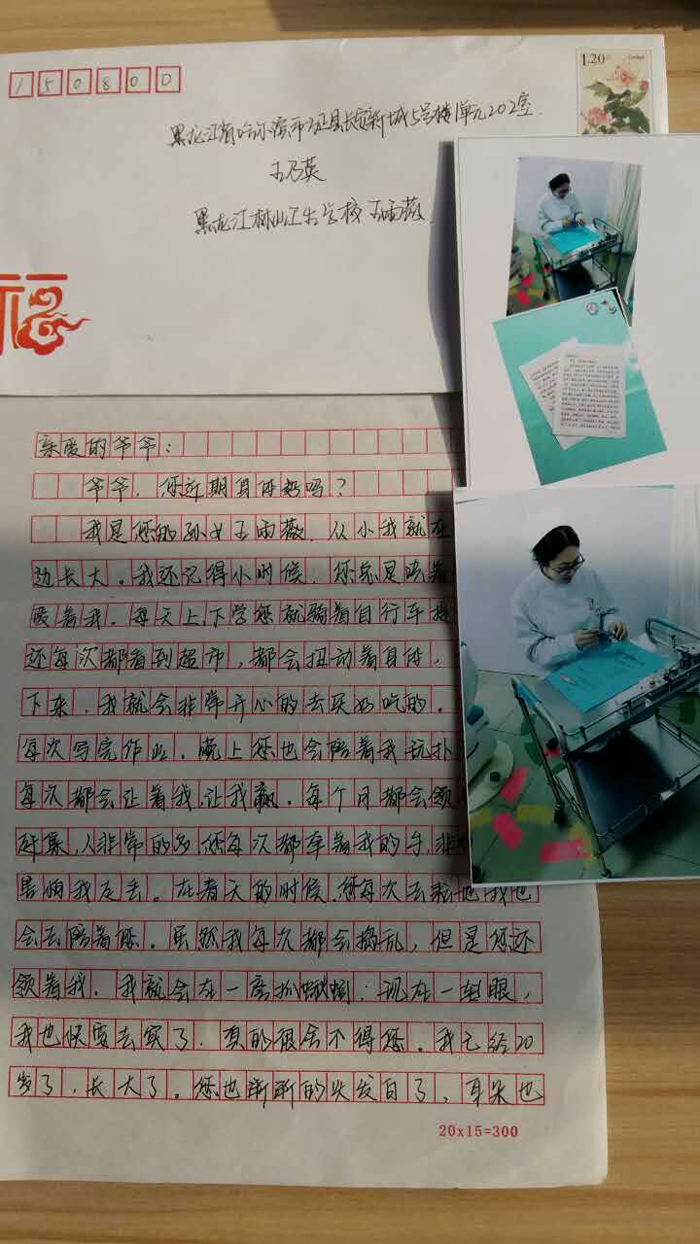 150800
1.20
黑龙江省哈尔滨市方正县长寿新城5号楼1单元202室.
王乃英
黑龙江林业卫生学校 王雨薇.
福
亲爱的爷爷:
爷爷.您近期身体好吗?
我是您的孙女王雨薇.从小我就在
边长大。我还记得小时候.您总是
爱着我.每天上.下学您就骑着自行车
还每次都看到超市,都会扭动着身体,
下来.我就会非常开心的去买好吃的.
每次写完作业.晚上您也会陪着我玩扑
每次都会让着我,让我赢.每个月都会领
赶集,人非常的多,还每次都牵着我的手,非
害怕我走丢。在春天的时候.您每次去 地我也
会去陪着您.虽然我每次都会捣乱,但是您还
领着我.我就会在一旁抓蝈蝈;现在一转眼,
我也快要去实了.真的很舍不得您.我已经20
岁了,长大了。您也渐渐的头发白了、耳朵也
20x15=300